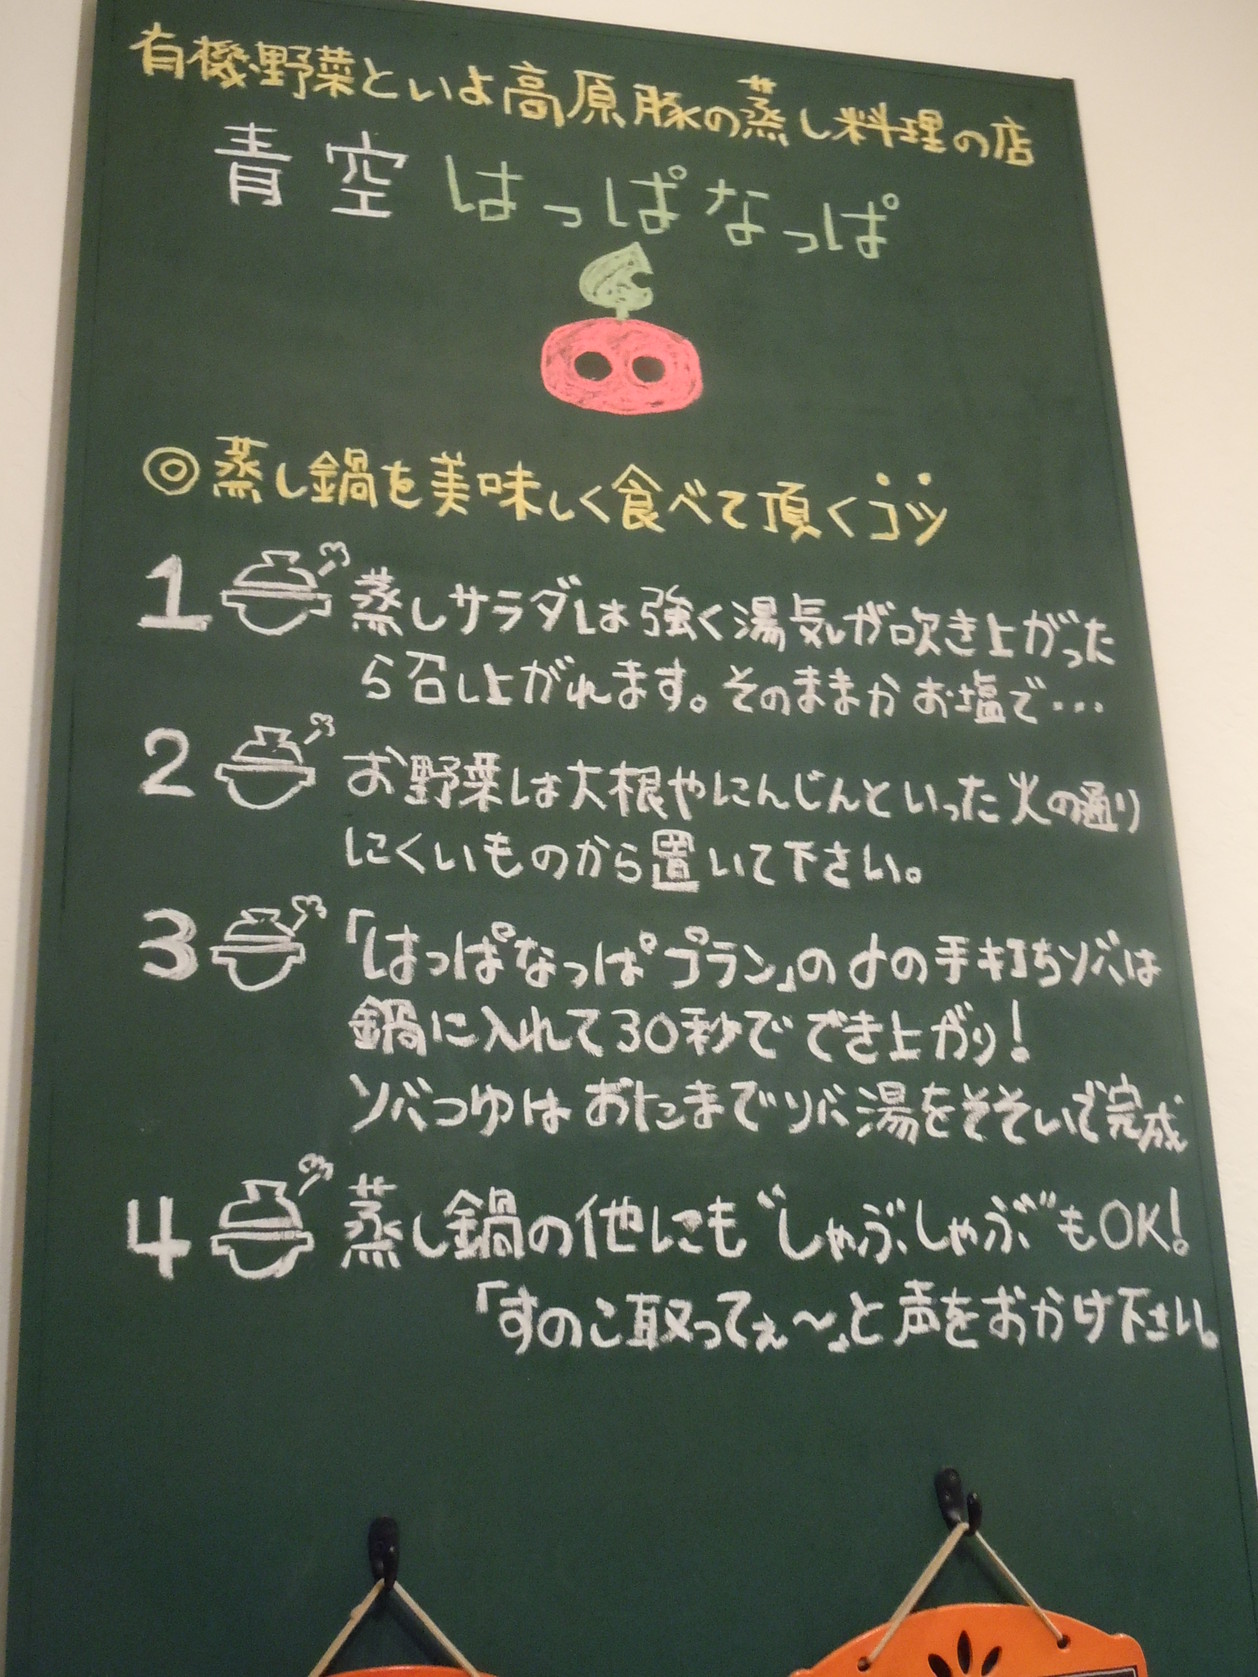 有機野菜といよ高原豚の蒸し料理の店
青空はっぱなっぱ
◎蒸し鍋を美味しく食べて頂くコツ
1 蒸しサラダは強く湯気が吹き上がった
ら召し上がれます。そのままかお塩で…
2 お野菜は大根やにんじんといった火の通り
にくいものから置いて下さい。
3 「はっぱなっぱプラン」の〆の手打ちソバは
鍋に入れて30秒でできき上がり!
ソバつゆはおたまでソバ湯をそそいで完成
4 蒸し鍋の他にも“しゃぶしゃぶ”もOK!
「すのこ取ってぇ～」と声をおかけ下さい。